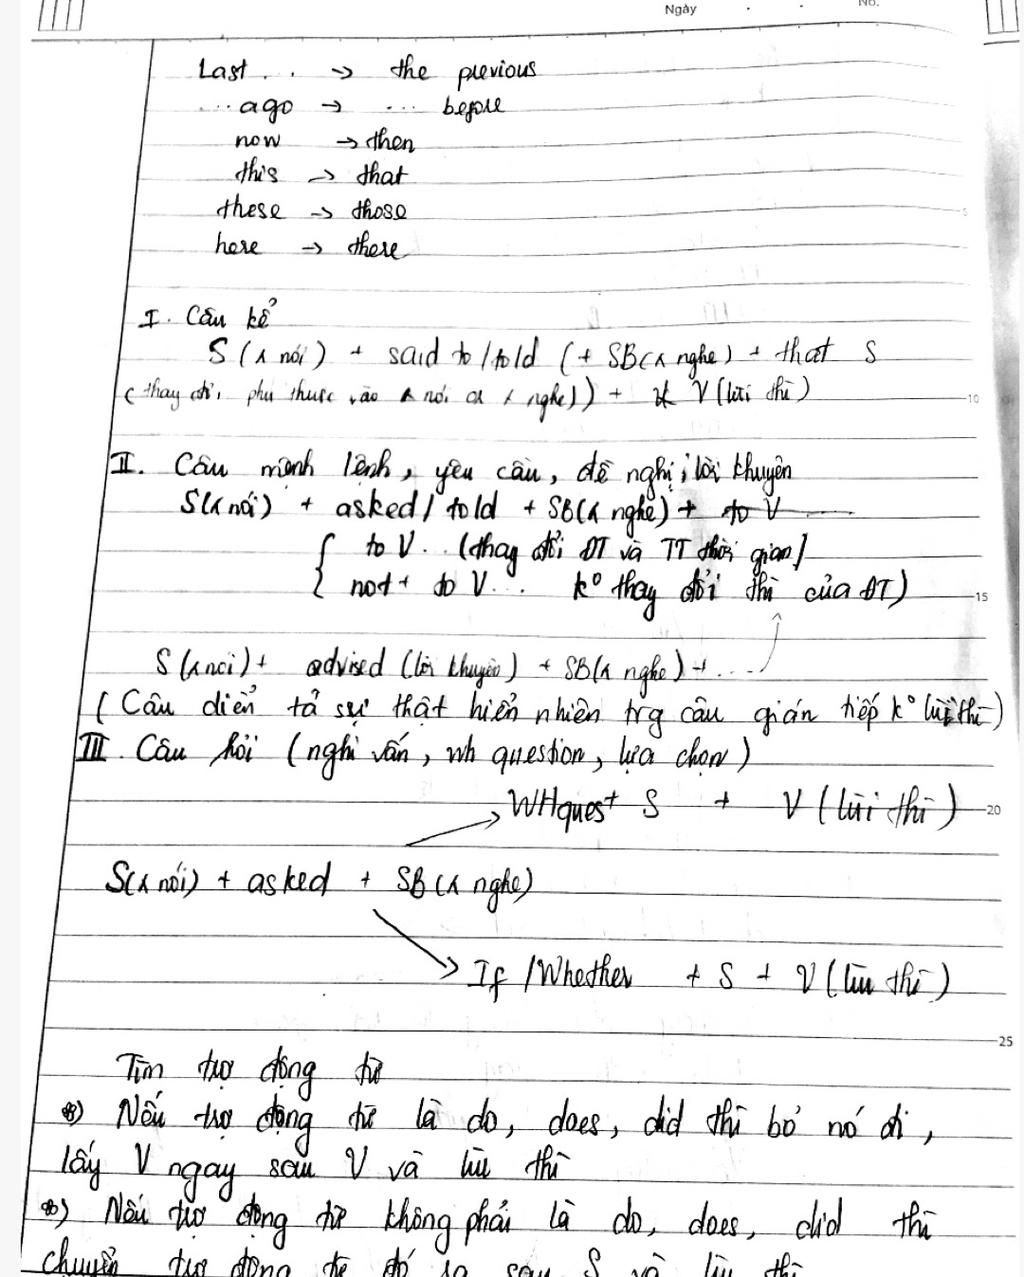 Ngày
No.
Last . . → the previous
... ago → ... before
now → then
this → that
these → those
here → there
I. Câu kể
S ( nói ) + said to / told (+ SB( nghe) + that S
( thay đổi, phụ thuộc vào nói nghe)) + V (lùi thì)
II. Câu mệnh lệnh, yêu cầu, đề nghị, lời khuyên
S( nói) + asked / told + SB( nghe) + to V
to V .. (thay đổi ĐT và TT thời gian)
not + to V ... k° thay đổi thì của ĐT)
S ( nói) + advised (lời khuyên) + SB( nghe) + ....
( Câu diển tả sự thật hiển nhiên trg câu gián tiếp k° lùi thì)
III. Câu hỏi (nghi vấn, wh question, lựa chọn)
WHquest S + V (lùi thì)
S( nói) + asked + SB ( nghe)
If / Whether + S + V (lùi thì)
Tìm trợ động từ
*) Nếu trợ động từ là do, does, did thì bỏ nó đi,
lấy V ngay sau V và lùi thì
*) Nếu trợ động từ không phải là do, does, did thì
chuyển trợ động từ đó ra sau S và lùi thì
5
10
15
20
25